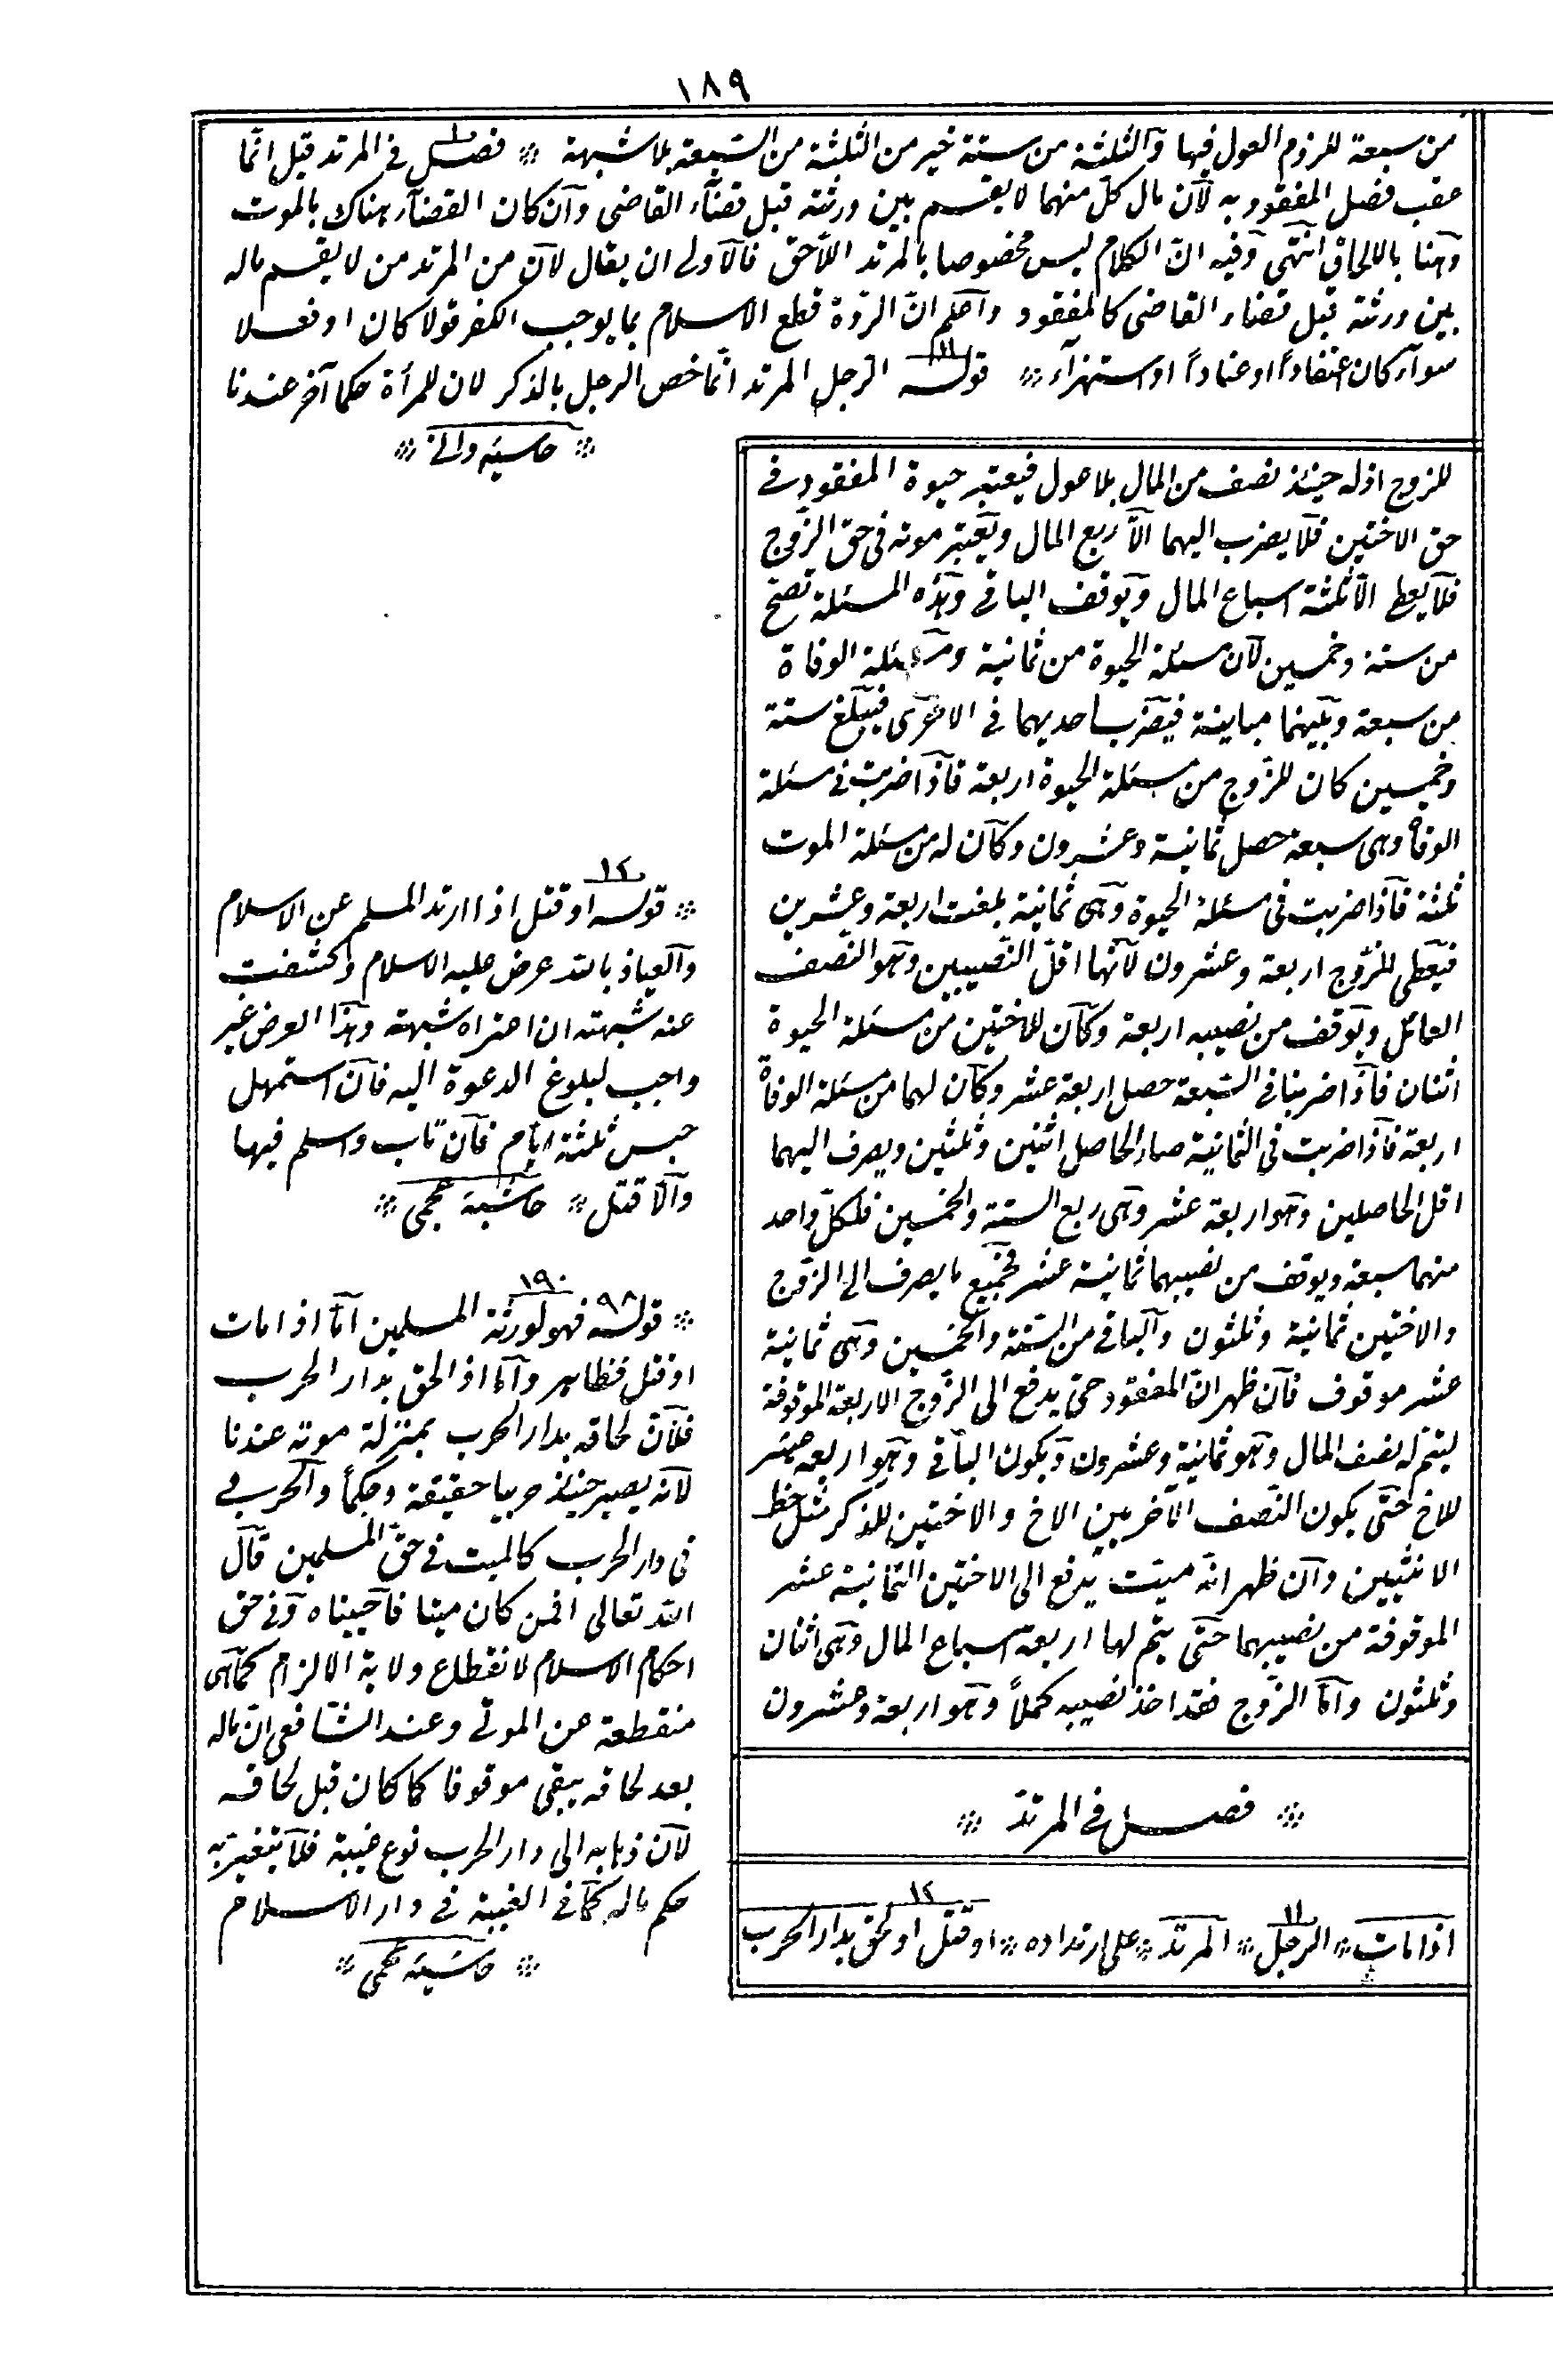 ١٨٩
من سبعة للزوم العول فيها والثلثة من ستة خير من الثلثة من السّبعة بلا شبهة ※ فصل فى المرتد قيل انّما
عقب فصل المفقود به لآن مال كلّ منهما لا يقسم بين ورثته قبل قضآء القاضى وآن كان القضآء هناك بالموت
وآهنا بالالحاق انتهى وفيه انّ الكلام ليس مخصوصا بالمرتد اللّاحق فالآولى ان يقال لآن من المرتد من لا يقسم ماله
بين ورثته قبل قضاء القاضى كالمفقود وآعلم انّ الردّة قطع الاسلام بما يوجب الكفر قولا كان او فعلا
سوآء كان اعتقاداً او عناداً او استهزآء ※ قوله ١١ الرّجل المرتد انّما خص الرجل بالذكر لان للمرأة حكما آخر عندنا
※ حاشيه والى ※
للزوج اذ له حينئذ نصف من المال بلا عول فيعتبر حيوة المفقود فى
حق الاختين فلآ يصرف اليهما الآّ ربع المال ويعتبر موته فى حق الزّوج
فلآ يعط الآّ ثلثة اسباع المال ويوقف الباقى وهذه المسئلة تصحّ
من ستة وخمسين لآن مسئلة الحيوة من ثمانية ومسئلة الوفاة
من سبعة وبينهما مباينة فيضرب احديهما فى الاخرى فيبلغ ستة
وخمسين كان للزّوج من مسئلة الحيوة اربعة فآذا ضربت فى مسئلة
الوفاة وهى سبعة حصل ثمانية وعشرون وكآن له من مسئلة الموت
ثلثة فآذا ضربت فى مسئلة الحيوة وهى ثمانية بلغت اربعة وعشرين
فيعطى للزّوج اربعة وعشرون لآنّها اقلّ النّصيبين وهو النّصف
العائل ويوقف من نصيبه اربعة وكآن للاختين من مسئلة الحيوة
اثنان فآذا ضربنا فى السّبعة حصل اربعة عشر وكآن لهما من مسئلة الوفاة
اربعة فآذا ضربت فى الثمانية صار الحاصل اثنين وثلثين ويصرف اليهما
اقلّ الحاصلين وهو اربعة عشر وهى ربع الستة والخمسين فلكلّ واحد
منهما سبعة ويوقف من نصيبهما ثمانية عشر فجميع ما يصرف الى الزّوج
والاختين ثمانية وثلثون وآلباقى من السّتة والخمسين وهى ثمانية
عشر موقوف فآن ظهر انّ المفقود حىّ يدفع الى الزّوج الاربعة الموقوفة
ليتم له نصف المال وهو ثمانية وعشرون ويكون البآقى وهو اربعة عشر
للاخ حتّى يكون النّصف الآخر بين الاخ والاختين للذكر مثل حظ
الانثيين وآن ظهر انّه ميّت يدفع الى الاختين الثمانية عشر
الموقوفة من نصيبهما حتّى يتم لهما اربعة اسباع المال وهى اثنان
وثلثون وآمّا الزّوج فقد اخذ نصيبه كملاً وهو اربعة وعشرون
※ فصل فى المرتدّ ※
اذا مات ※ الرجل ١١ ※ المرتدّ ※ على ارتداده ※ او قتل ١٢ او لحق بدار الحرب
※ قوله ١٢ او قتل اذا ارتد المسلم عن الاسلام
وآلعياذ بالله عرض عليه الاسلام وكشفت
عنه شبهته ان اعتراه شبهة وهذا العرض غير
واجب لبلوغ الدعوة اليه فآن استمهل
حبس ثلثة ايّام فآن تاب واسلم فيها
وآلّا قتل ※ حاشية عجمى ※
١٩٠
※ قوله ٩٨ فهو لورثة المسلمين آمّا اذا مات
او قتل فظاهر وآمّا اذا لحق بدار الحرب
فلآن لحاقه بدار الحرب بمنزلة موته عندنا
لآنه يصير حينئذ حربيا حقيقة وحكماً وآلحربى
فى دار الحرب كالميت فى حق المسلمين قآل
الله تعالى افمن كان ميتا فآحييناه وفى حق
احكام الاسلام لانقطاع ولاية الالزام كمآ هى
منقطعة عن الموتى وعند الشّافعى انّ ماله
بعد لحاقه يبقى موقوفا كما كان قبل لحاقه
لآن ذهابه الى دار الحرب نوع غيبة فلآ يتغير به
حكم ماله كمآ فى الغيبة فى دار الاسلام
※ حاشية عجمى ※